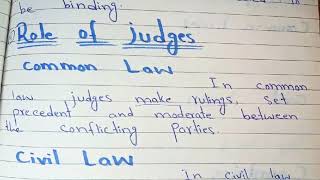 be binding.
Role of judges
Common Law
In common
law judges make rulings, set
precedent and moderate between
the conflicting parties.
Civil Law
in civil law